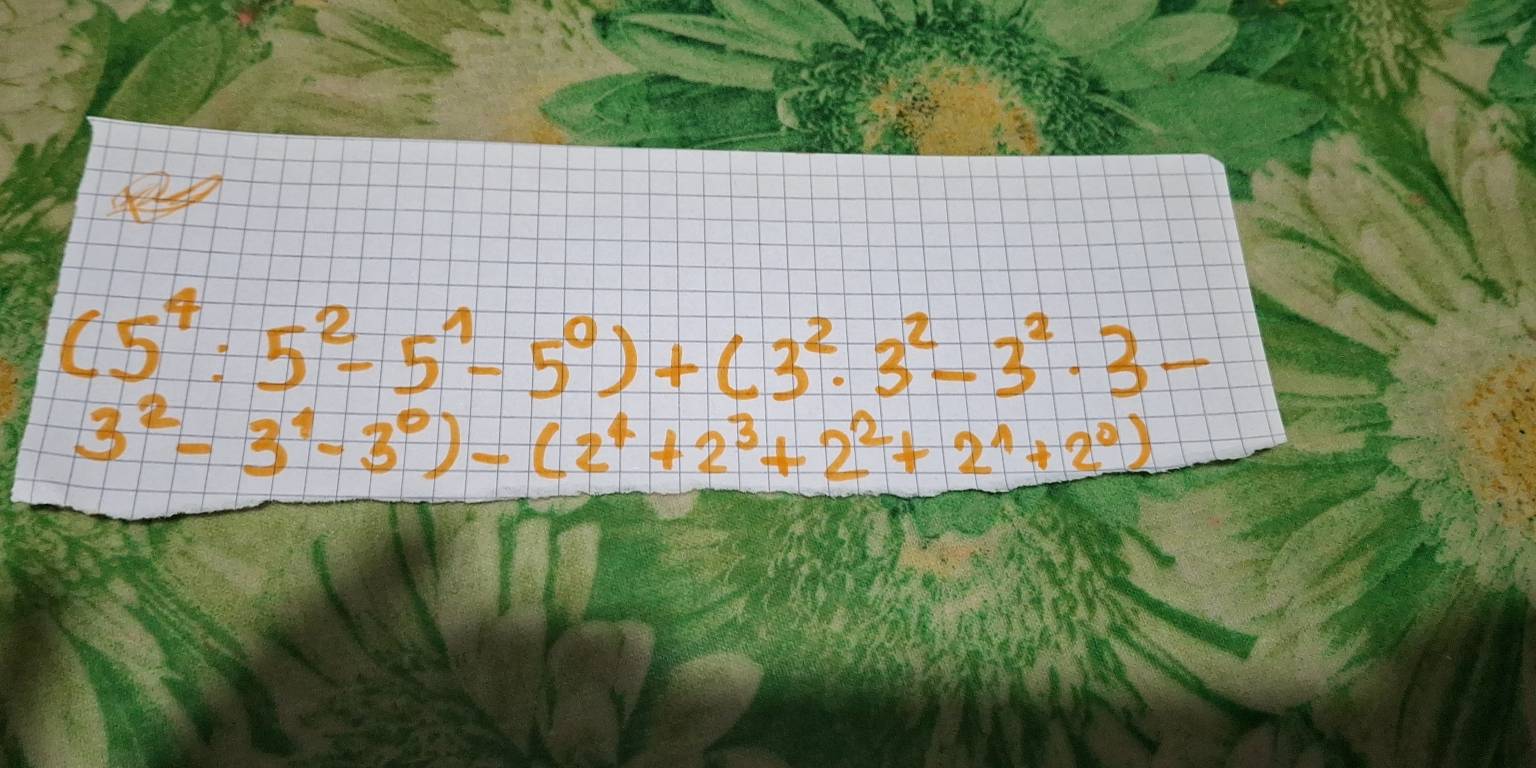 (5⁴ : 5² - 5¹ - 5⁰) + (3² · 3² - 3² · 3 -
3² - 3¹ - 3⁰) - (2⁴ + 2³ + 2² + 2¹ + 2⁰)